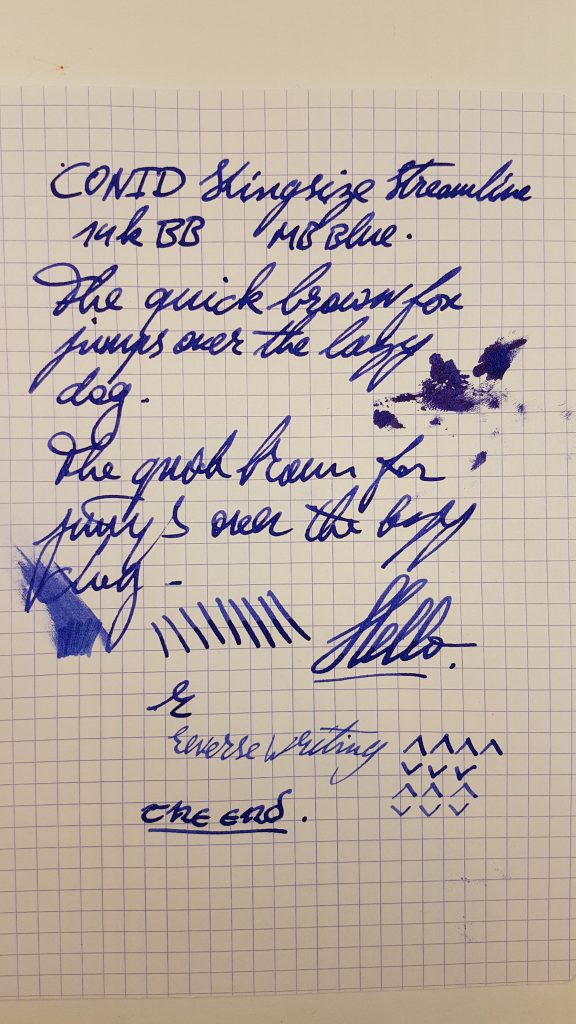 CONID Kingsize Streamline
14k BB MB Blue.
The quick brown fox
jumps over the lazy
dog.
The quick brown fox
jumps over the lazy
dog -
Hello.
Reverse writing
THE END.